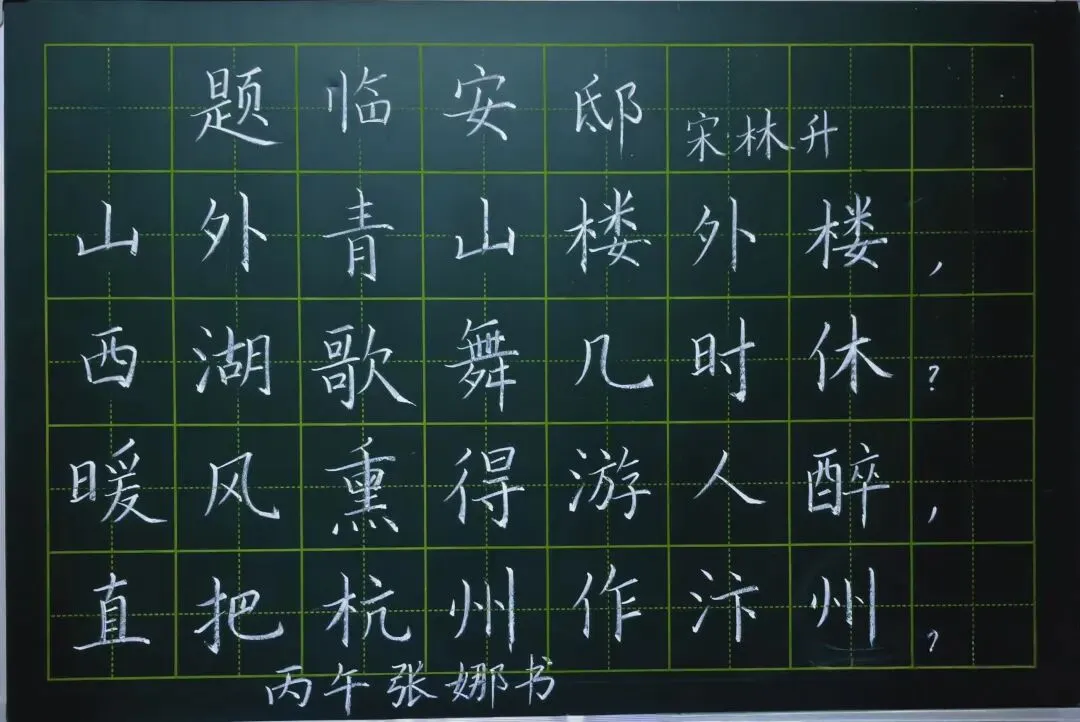 题临安邸 宋林升
山外青山楼外楼，
西湖歌舞几时休？
暖风熏得游人醉，
直把杭州作汴州？
丙午张娜书